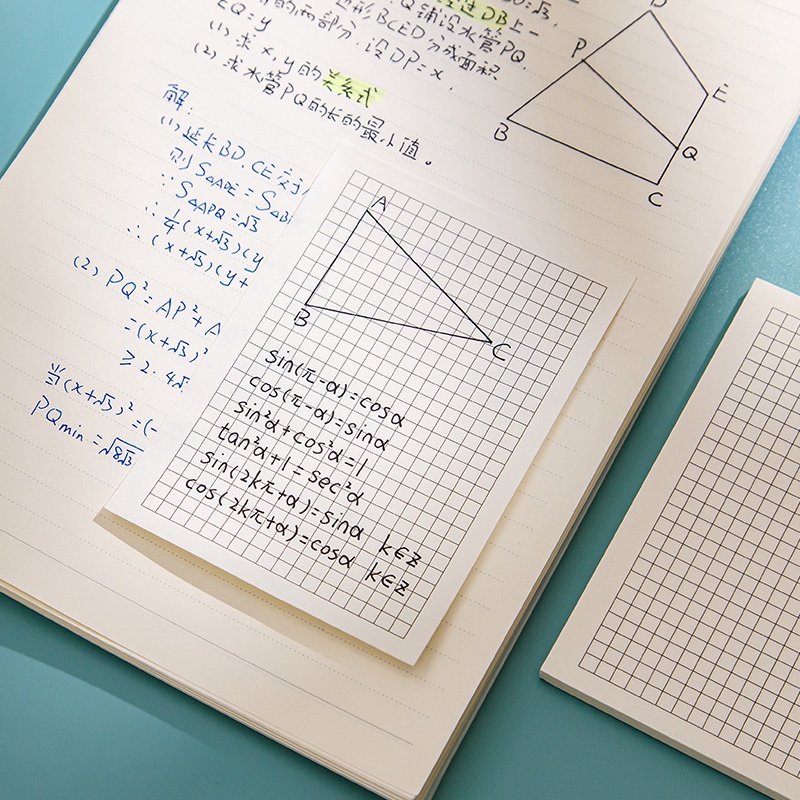 DB上一
Q铺设水管PQ
EQ=y
边形BCED分成面积
的两部分,设DP=x,
(1)求x,y的关系式
(2)求水管PQ的长的最小值。
D
P
E
B
Q
C
解:
(1)延长BD,CE交于
则S△ADE=S△B
∵S△APQ=√3
∴1/4(x+√3)(y
∴(x+√3)(y+
(2)PQ²=AP²+A
=(x+√3)²
≥2·4√
当(x+√3)²=(-
PQmin=√8√3
A
B
C
sin(π-α)=cosα
cos(π-α)=sinα
sin²α+cos²α=1
tan²α+1=sec²α
sin(2kπ+α)=sinα k∈z
cos(2kπ+α)=cosα k∈z